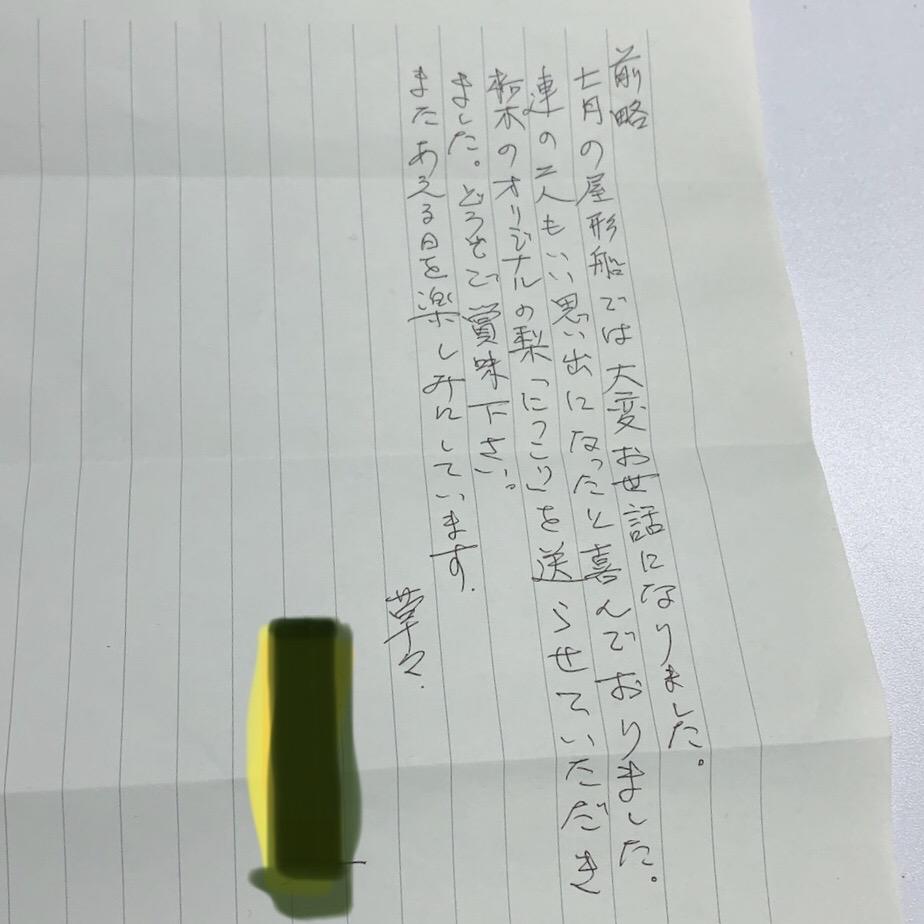 前略
七月の屋形船では大変お世話になりました。
連の二人もいい思い出になったと喜んでおりました。
栃木のオリジナルの梨「にっこり」を送らせていただき
ました。どうぞご賞味下さい。
またあえる日を楽しみにしています.
草々.